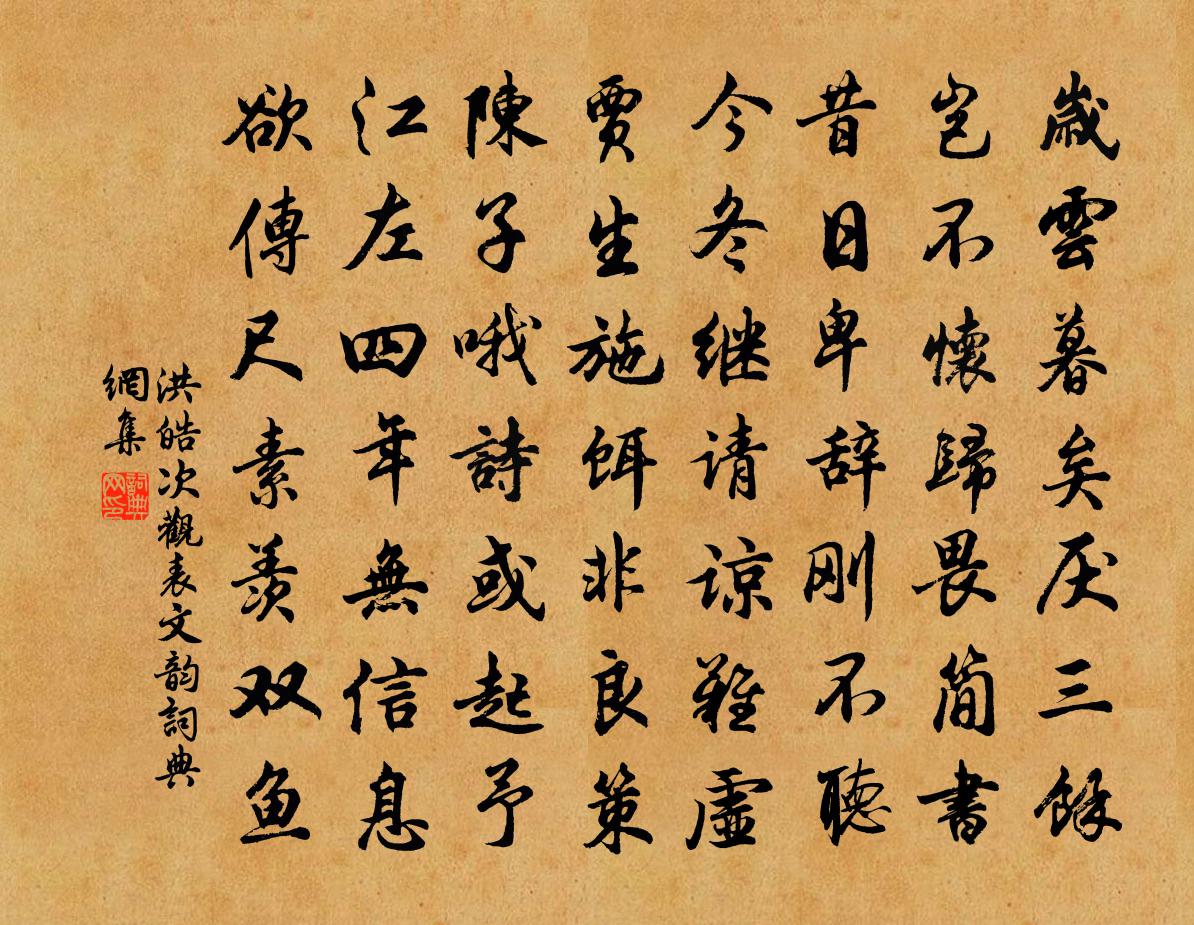 歲雲暮矣厌三餘
豈不懷歸畏简書
昔日卑辞刚不聽
今冬继请谅難虛
賈生施饵非良策
陳子哦詩或起予
江左四年無信息
欲傳尺素羨双鱼
洪皓次觀表文韵詞典
網集
詞典
网印